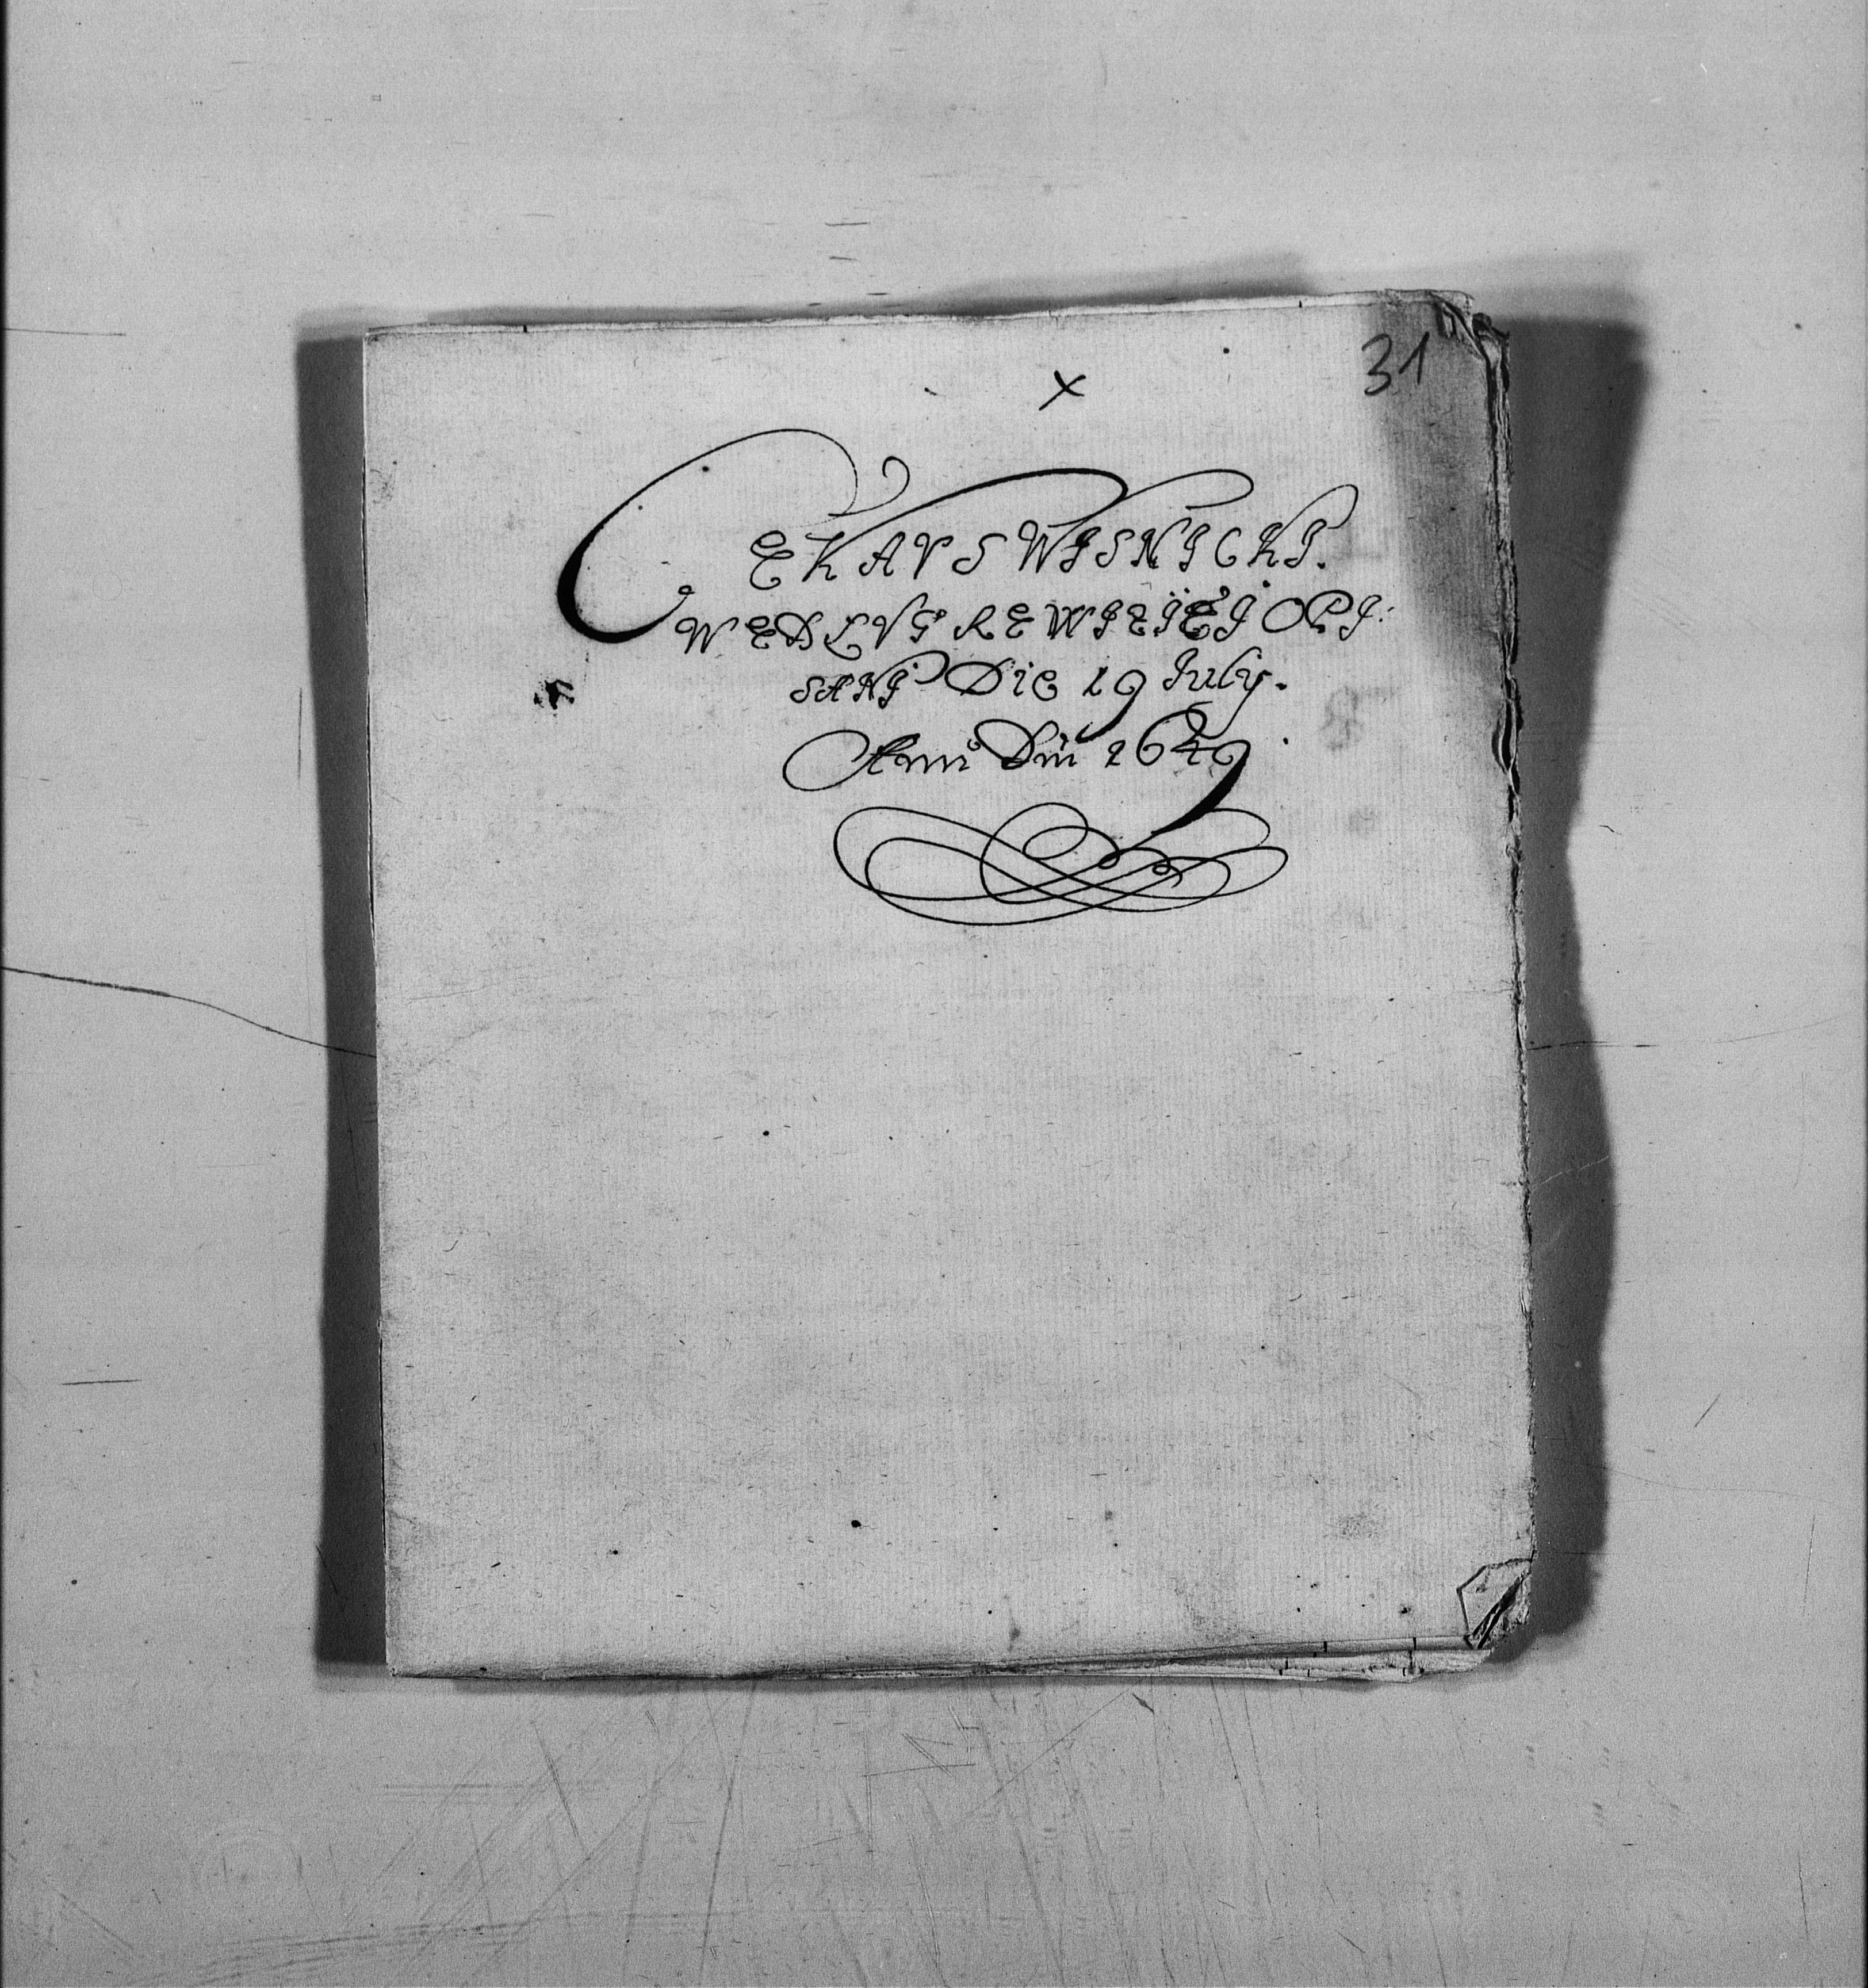 31
x
CEKAVS WISNICKI.
WEDLVG REWIZIEJ OPI:
SANJ Die 19 July.
Anni Dni 1649